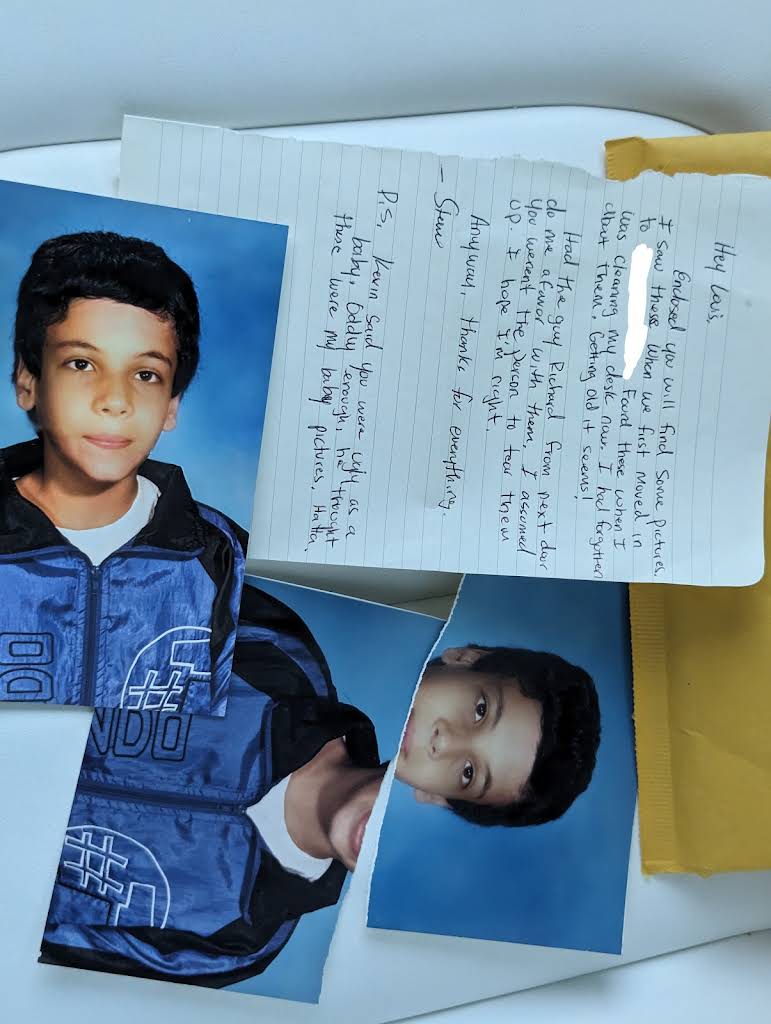 Hey Louis,
Enclosed you will find some pictures.
I saw these when we first moved in
to
Found these when I
was cleaning my desk now. I had forgotten
about them. Getting old it seems!
Had the guy Richard from next door
do me a favor with them. I assumed
you werent the person to tear them
up. I hope I'm right.
Anyway, thanks for everything.
— Steve
P.S. Kevin said you were ugly as a
baby. Oddly enough, he thought
these were my baby pictures. HaHa.
#1
NDO
#1
DO